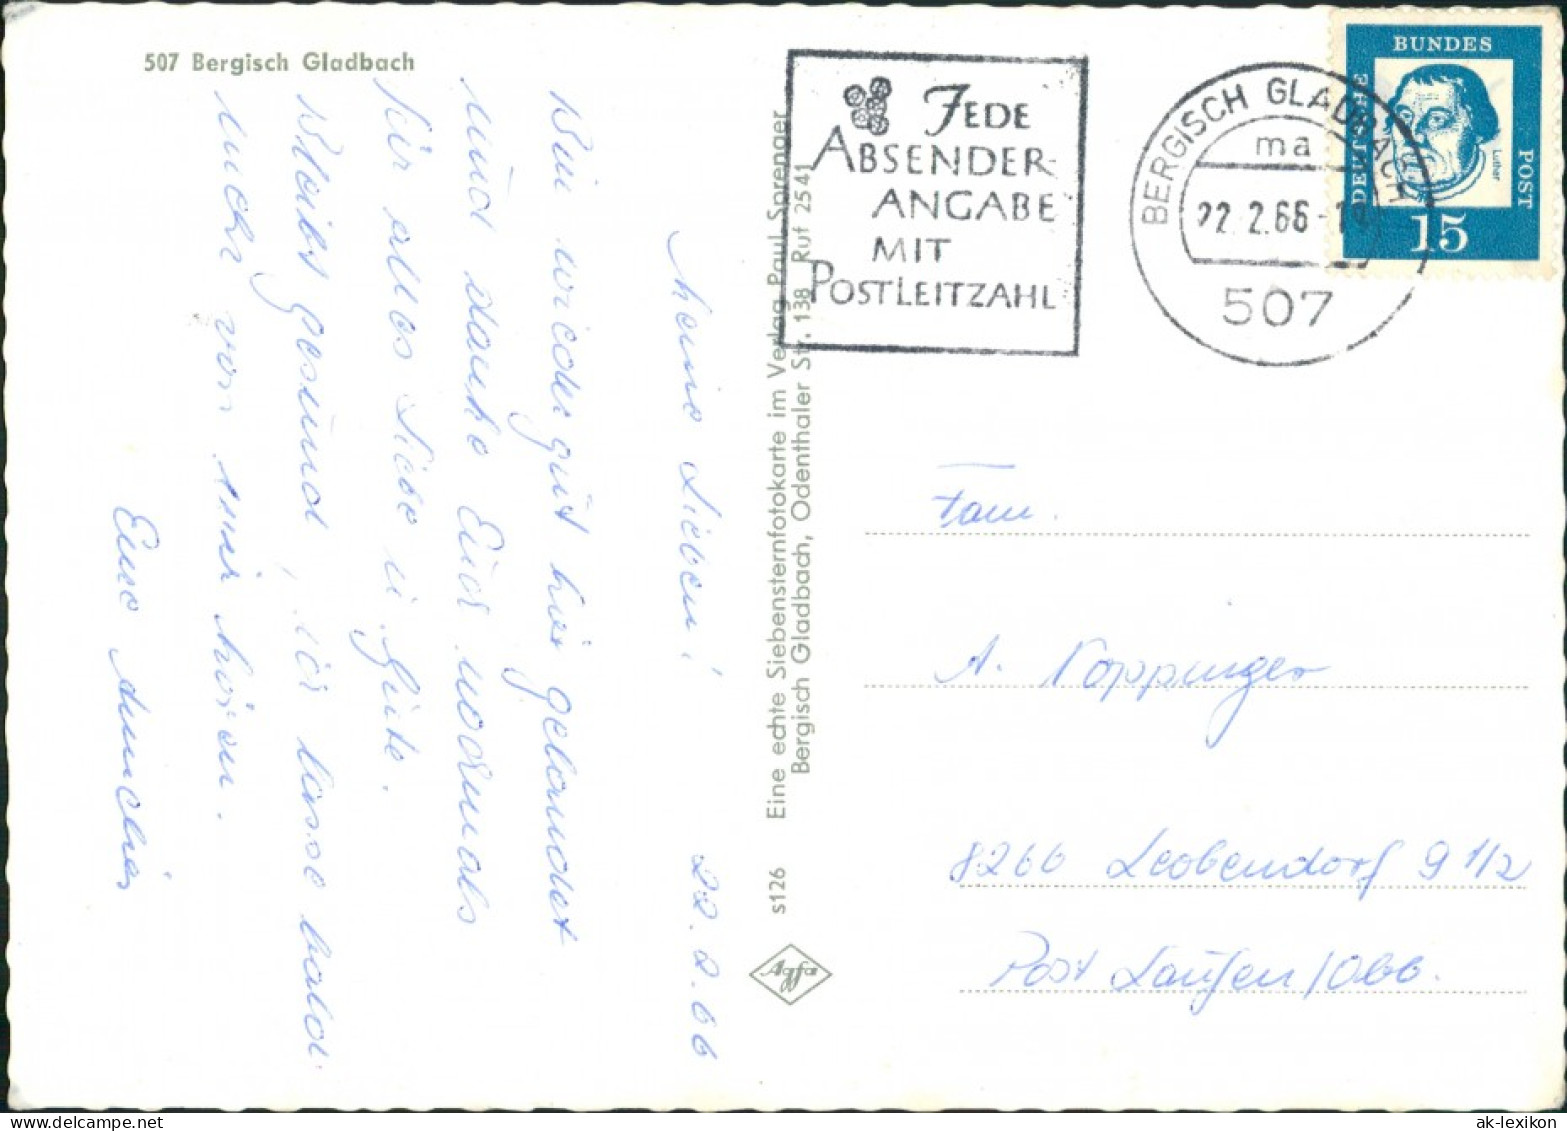 507 Bergisch Gladbach
Meine Lieben! 22.2.66
Bin wieder gut hier gelandet
und danke Euch nochmals
für alles Liebe u. Güte.
Bleibt gesund, ich lasse bald
mehr von mir hören.
Eure
s126 Eine echte Siebensternfotokarte im Verlag Paul Sprenger
Bergisch Gladbach, Odenthaler Str. 138 Ruf 2541
Agfa
JEDE
ABSENDER-
ANGABE
MIT
POSTLEITZAHL
BERGISCH GLADBACH
ma
22.2.66-
507
DEUTSCHE BUNDESPOST
Luther
15
Fam.
A. Noppinger
8266 Leobendorf 9 1/2
Post Laufen/Obb.
ak-lexikon